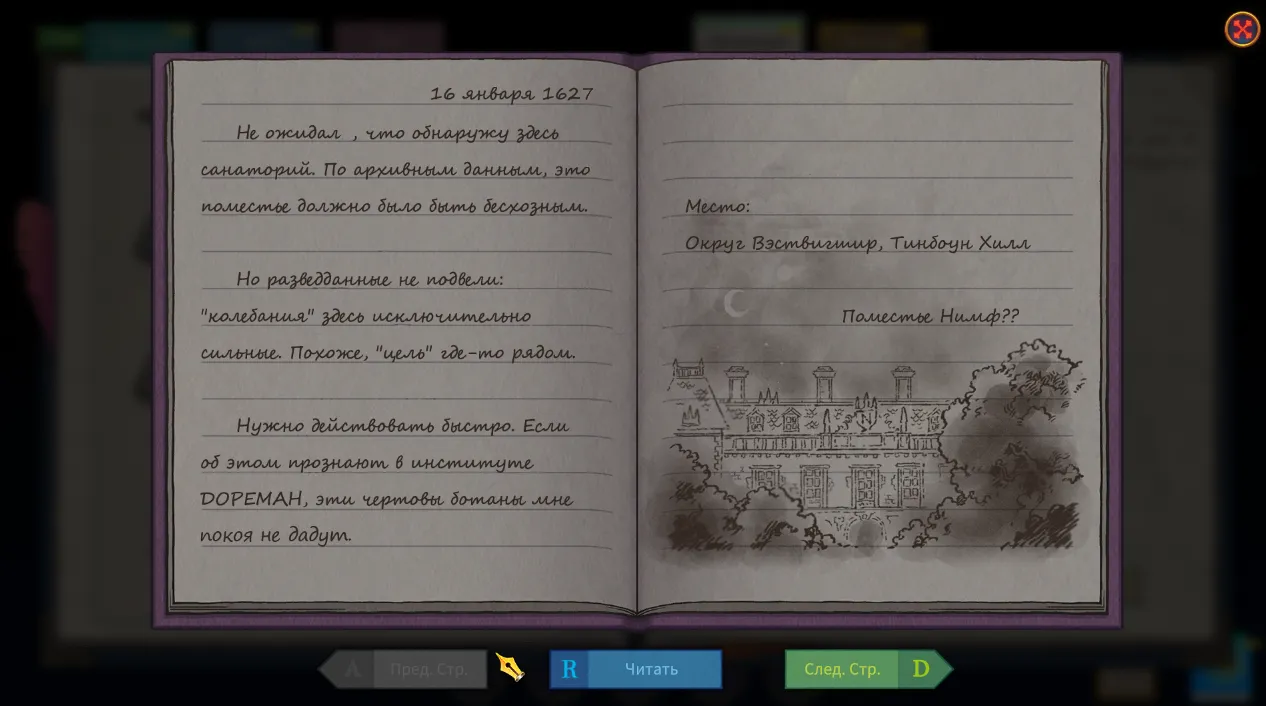 16 января 1627
Не ожидал , что обнаружу здесь
санаторий. По архивным данным, это
поместье должно было быть бесхозным.
Но разведданные не подвели:
"колебания" здесь исключительно
сильные. Похоже, "цель" где-то рядом.
Нужно действовать быстро. Если
об этом прознают в институте
DOPEMAH, эти чертовы ботаны мне
покоя не дадут.
Место:
Округ Вэствигшир, Тинбоун Хилл
Поместье Нимф??
N
A Пред. Стр.
R Читать
След. Стр. D